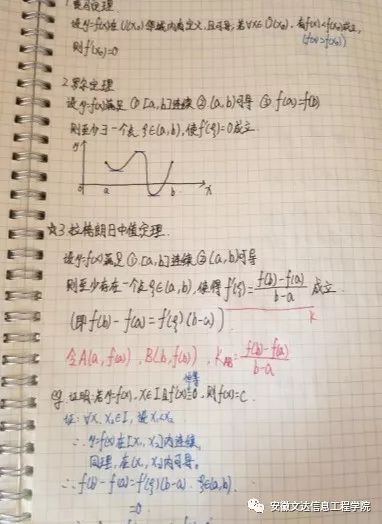 1.费马定理
设y=f(x)在U(x₀)邻域内有定义,且可导,若∀x∈Ů(x₀),有f(x)<f(x₀)成立,
(f(x)>f(x₀))
则f'(x₀)=0
2.罗尔定理
设y=f(x)满足 ①[a,b]连续 ②(a,b)可导 ③f(a)=f(b)
则至少ヨ一个点ξ∈(a,b),使f'(ξ)=0成立.
y
0 a b x
☆3.拉格朗日中值定理.
设y=f(x)满足①[a,b]连续②(a,b)可导
则至少存在一个点ξ∈(a,b),使得f'(ξ)=f(b)-f(a)/b-a成立.
(即f(b)-f(a)=f'(ξ)(b-a)) k
令A(a,f(a)),B(b,f(b)),kAB=f(b)-f(a)/b-a
恒等
例.证明:若y=f(x),x∈I且f'(x)≡0,则f(x)=C.
证:∀x₁,x₂∈I,设x₁<x₂
∴y=f(x)在[x₁,x₂]内连续,
同理,在(x₁,x₂)内可导。
∴f(b)-f(a)=f'(ξ)(b-a).ξ∈(a,b).
=0
安徽文达信息工程学院